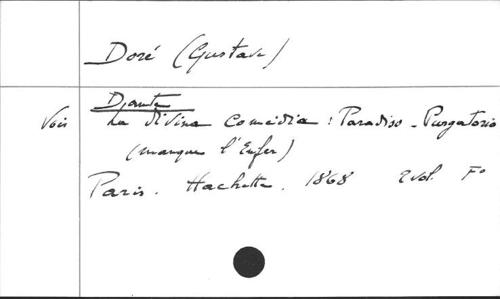 Doré (Gustave)
Dante
Voir La divina Comedia : Paradiso - Purgatorio
(manque l'Enfer)
Paris. Hachette. 1868 2 vol. F°